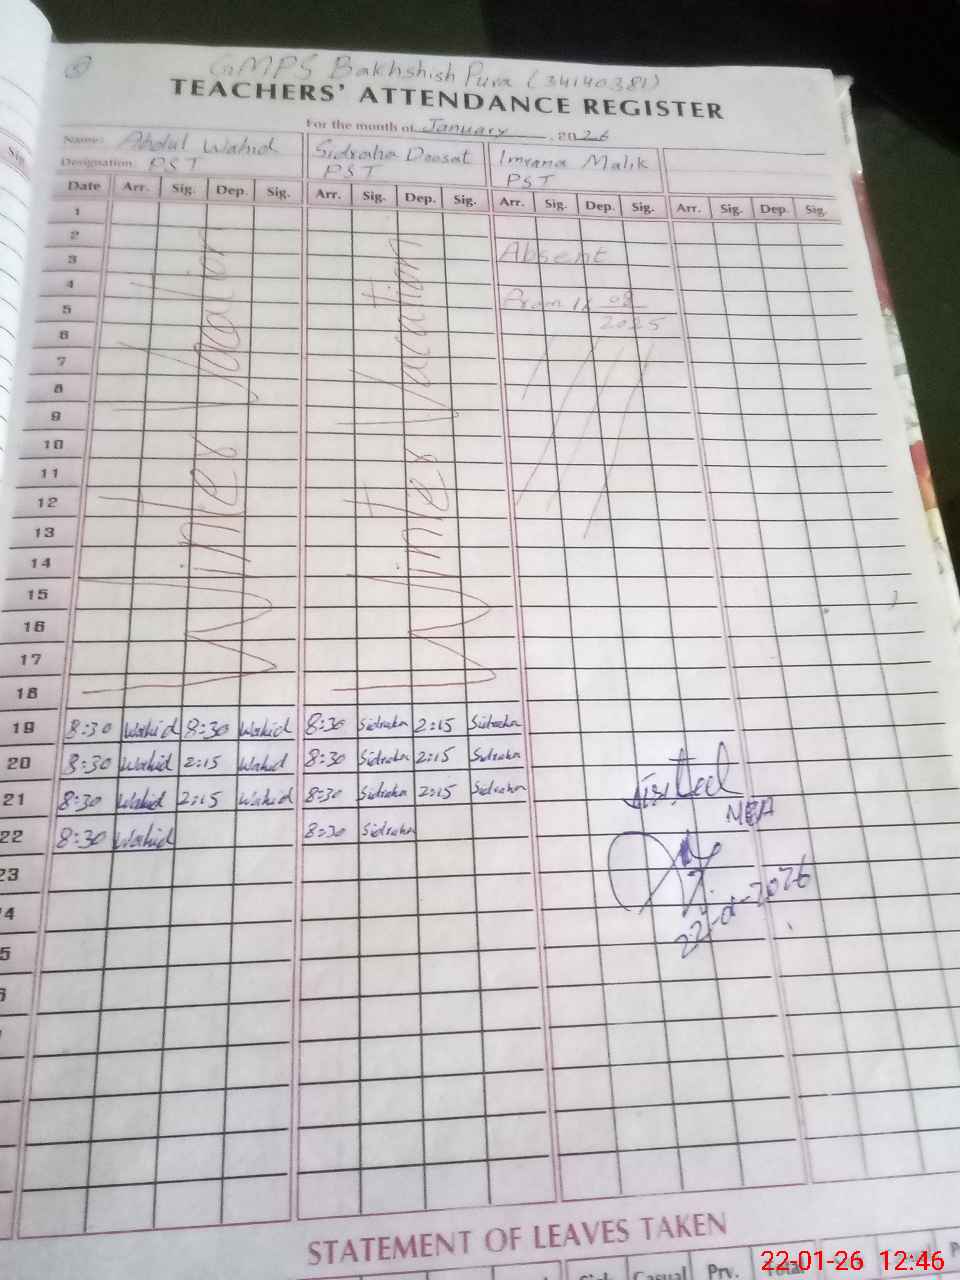 8
GMPS Bakhshish Pura (34140381)
TEACHERS' ATTENDANCE REGISTER
For the month of January 2026
Name: Abdul Wahid Sidraha Doosat Imrana Malik
Designation: PST PST PST
Date Arr. Sig. Dep. Sig. Arr. Sig. Dep. Sig. Arr. Sig. Dep. Sig. Arr. Sig. Dep. Sig.
1
2
3 Absent
4
5 From 11 08
6 2025
7
8
9
10
11
12
13
14
15
16
17
18
Winter Vacation
Winter Vacation
19 8:30 Wahid 8:30 Wahid 8:30 Sidraha 2:15 Sidraha
20 8:30 Wahid 2:15 Wahid 8:30 Sidraha 2:15 Sidraha
21 8:30 Wahid 2:15 Wahid 8:30 Sidraha 2:15 Sidraha
22 8:30 Wahid 8:30 Sidraha
Visited
MEA
22-01-2026
23
4
5
6
STATEMENT OF LEAVES TAKEN
Casual Prv. Total
22-01-26 12:46